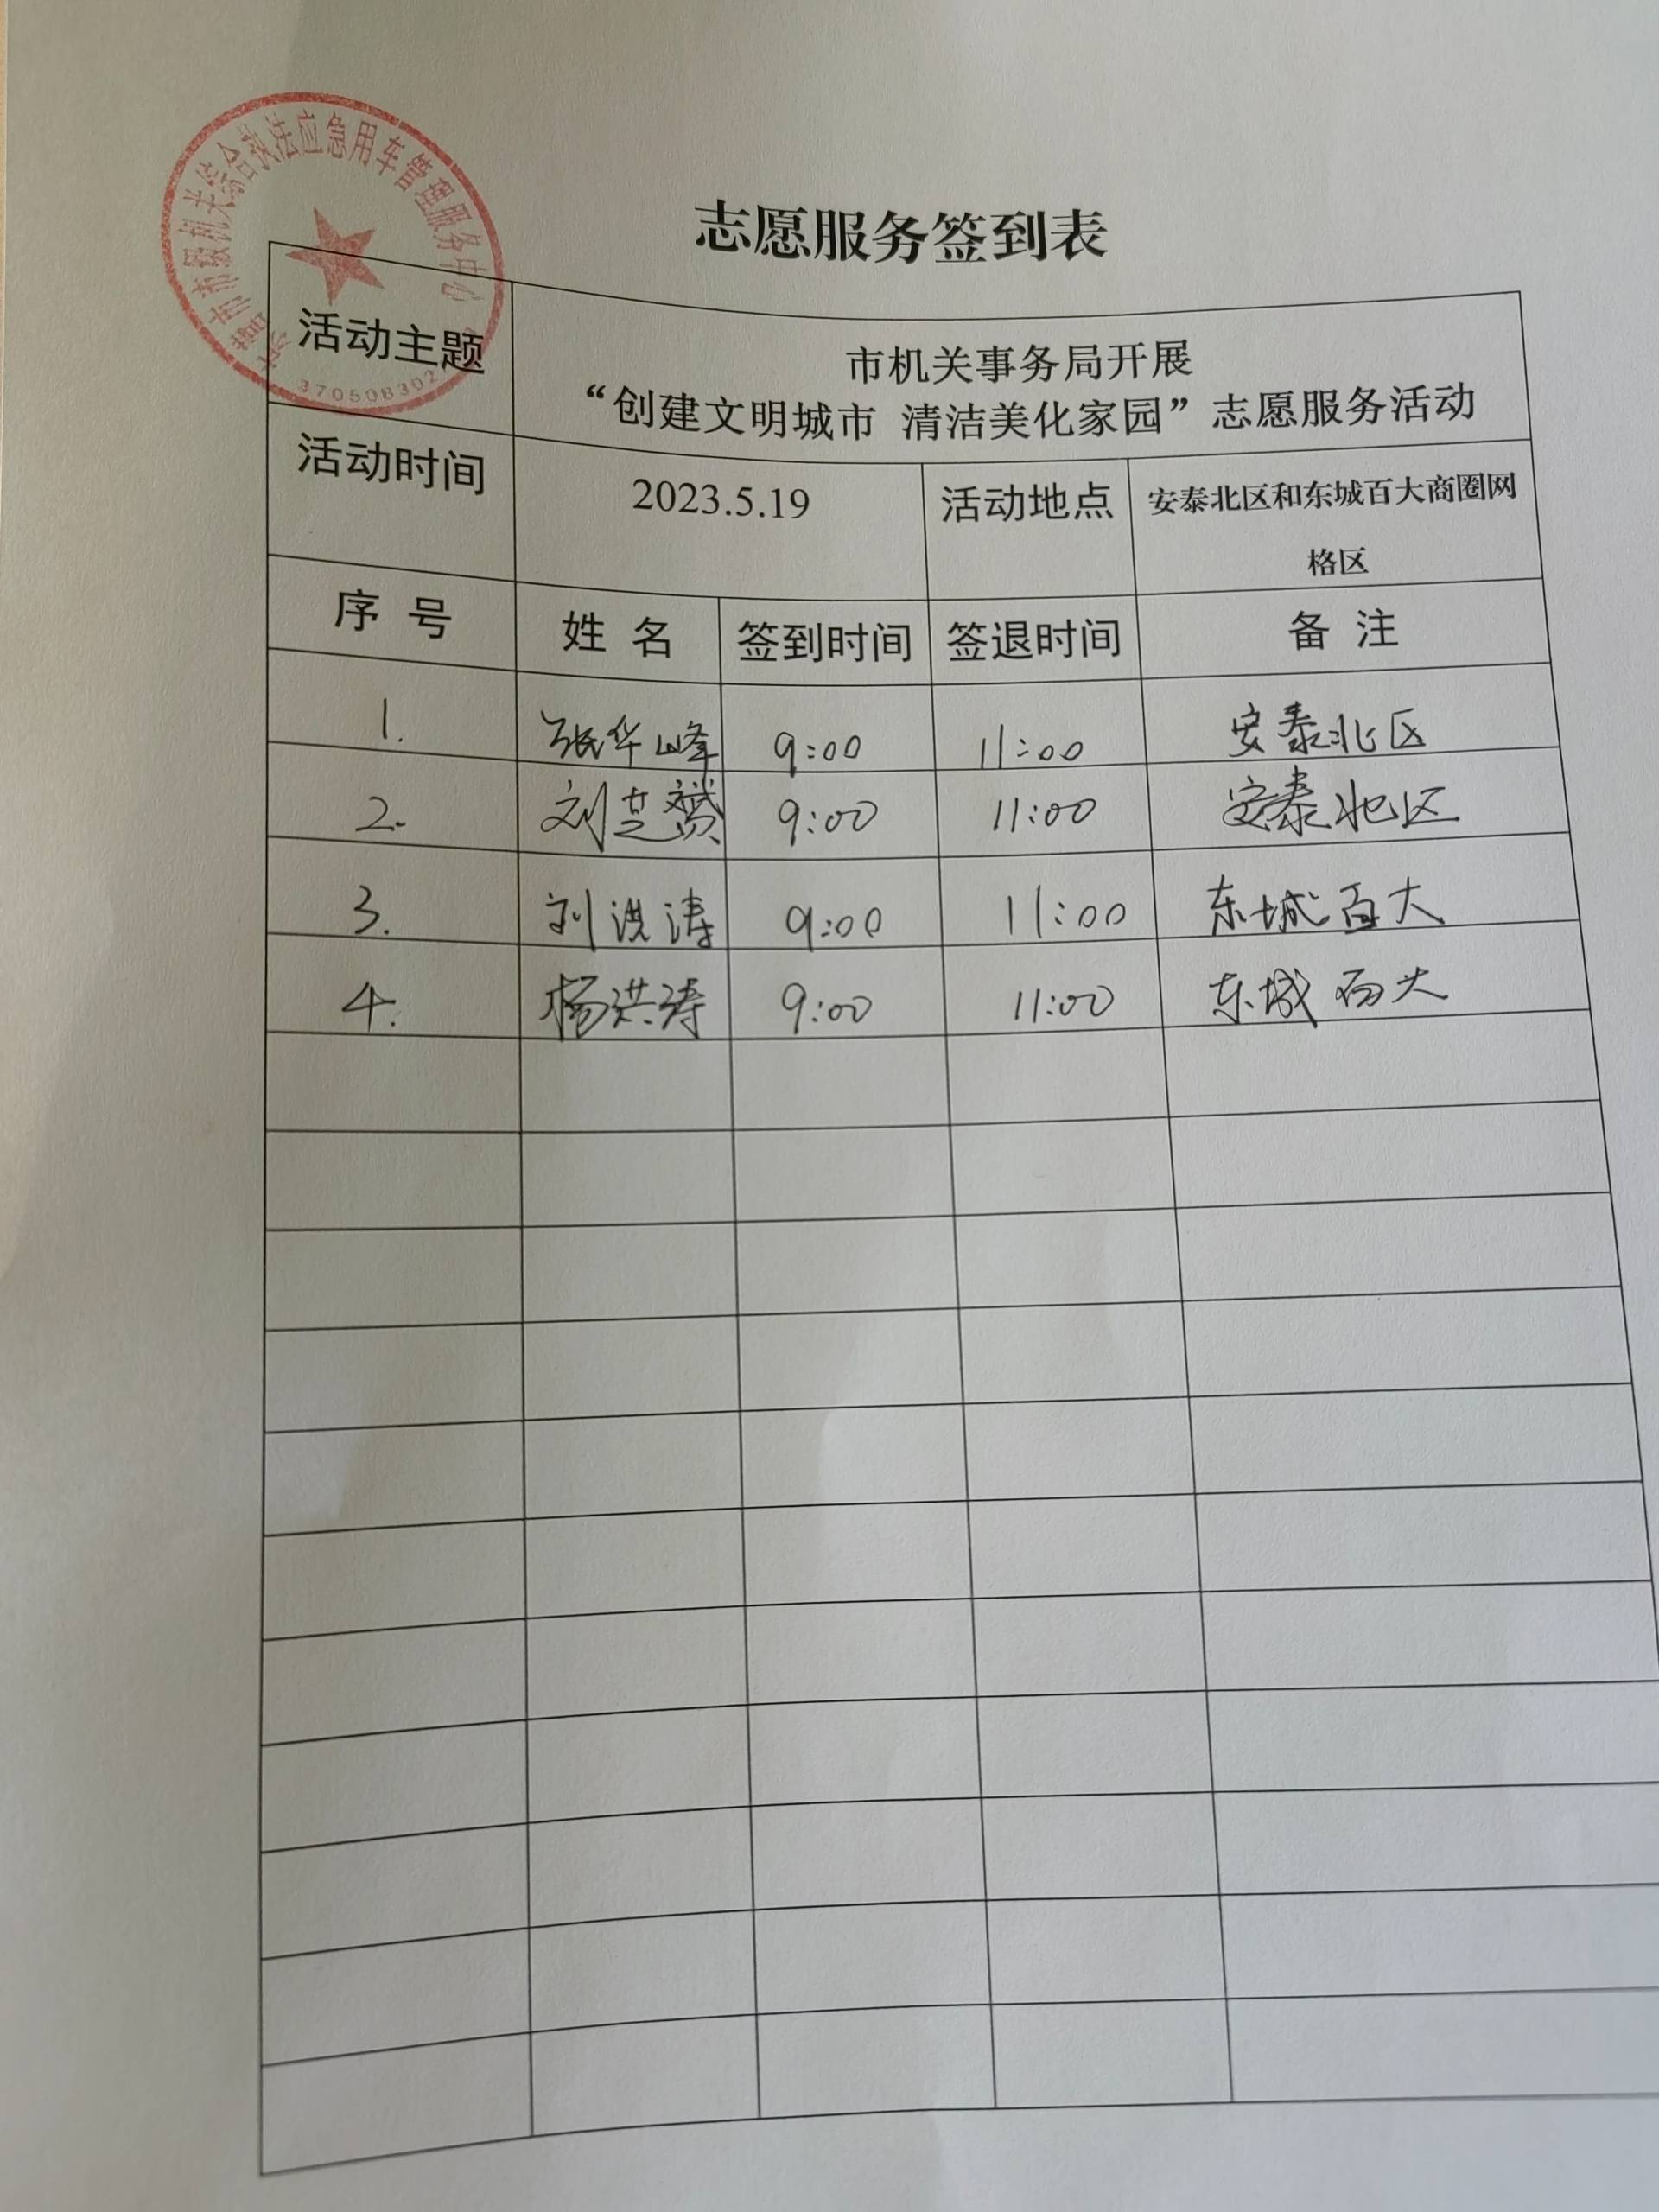 东营市市级机关综合执法应急用车管理服务中心
志愿服务签到表
活动主题
市机关事务局开展
“创建文明城市 清洁美化家园”志愿服务活动
活动时间
2023.5.19
活动地点
安泰北区和东城百大商圈网
格区
序 号 姓 名 签到时间 签退时间 备 注
1. 张华峰 9:00 11:00 安泰北区
2. 刘芝赟 9:00 11:00 安泰北区
3. 刘洪涛 9:00 11:00 东城百大
4. 杨洪涛 9:00 11:00 东城百大